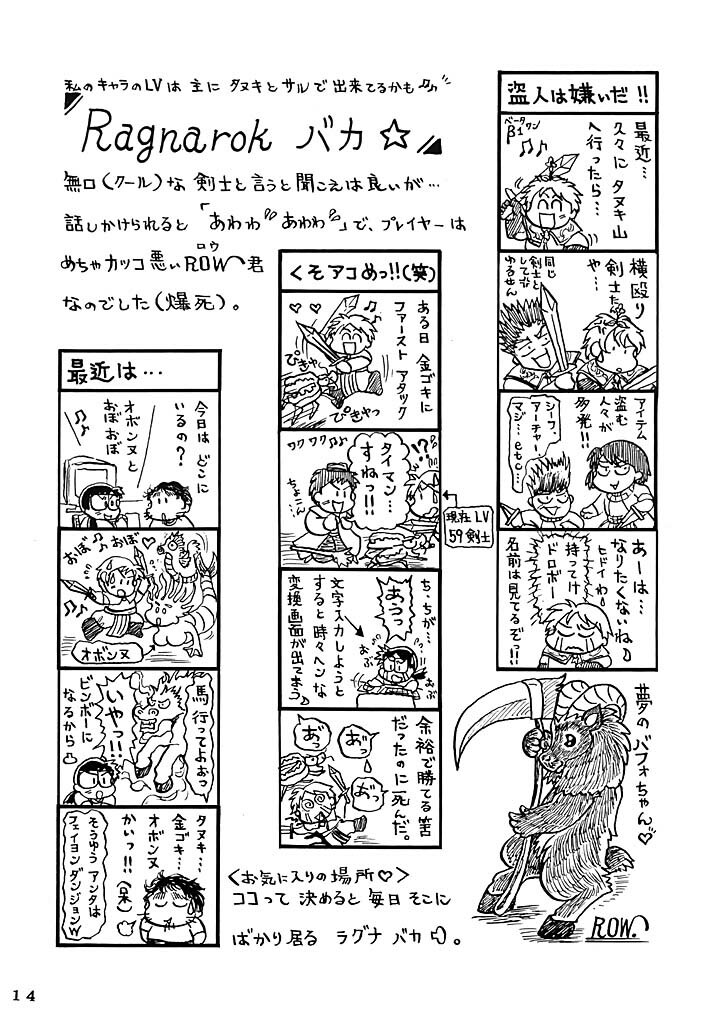 私のキャラのLVは 主に タヌキと サルで 出来てるかも♪
Ragnarok バカ☆
無口(クール)な 剣士と言うと 聞こえは良いが…
話しかけられると「あわわ あわわ」で、プレイヤーは
めちゃカッコ悪いROW君
ロウ
なのでした(爆死)。
盗人は嫌いだ!!
最近…
久々に タヌキ山
へ行ったら…
ベータワン
β1
♪♪
横殴り
剣士たち
や…
同じ
剣士と
して
ゆるせん
アイテム
盗む
人々が
多発!!
シーフ、
アーチャー、
マジ…etc…
あーは…
なりたくないね♪
ヒドイわ
持ってけ
ドロボー
名前は見てるぞっ!!
くそアコめっ!!(笑)
ある日 金ゴキに
ファースト アタック
♥♥
♪♪
ぴきゃっ
ぴきゃっ
タイマン…
すねっ!!
ワクワク♪♪
ちょこん
!?
現在LV
59剣士
ち…ちが…
あうっ
文字入力しようと
すると 時々ヘンな
変換画面が出てまう♪
おぶ
おぶ
余裕で勝てる筈
だったのに死んだ。
おっ
おっ
おっ
最近は…
今日は どこに
いるの?
オボンヌと
おぼおぼ
♪♪
おぼ
おぼ
オボンヌ
馬 行ってよぉっ
いやっ!!
ビンボーに
なるから
タヌキ…
金ゴキ…
オボンヌ
かいっ!!(呆)
そうゆう アンタは
フェイヨンダンジョンw
<お気に入りの場所♡>
ココって 決めると 毎日 そこに
ばかり居る ラグナ バカ。
夢の バフォちゃん♡
ROW.
14